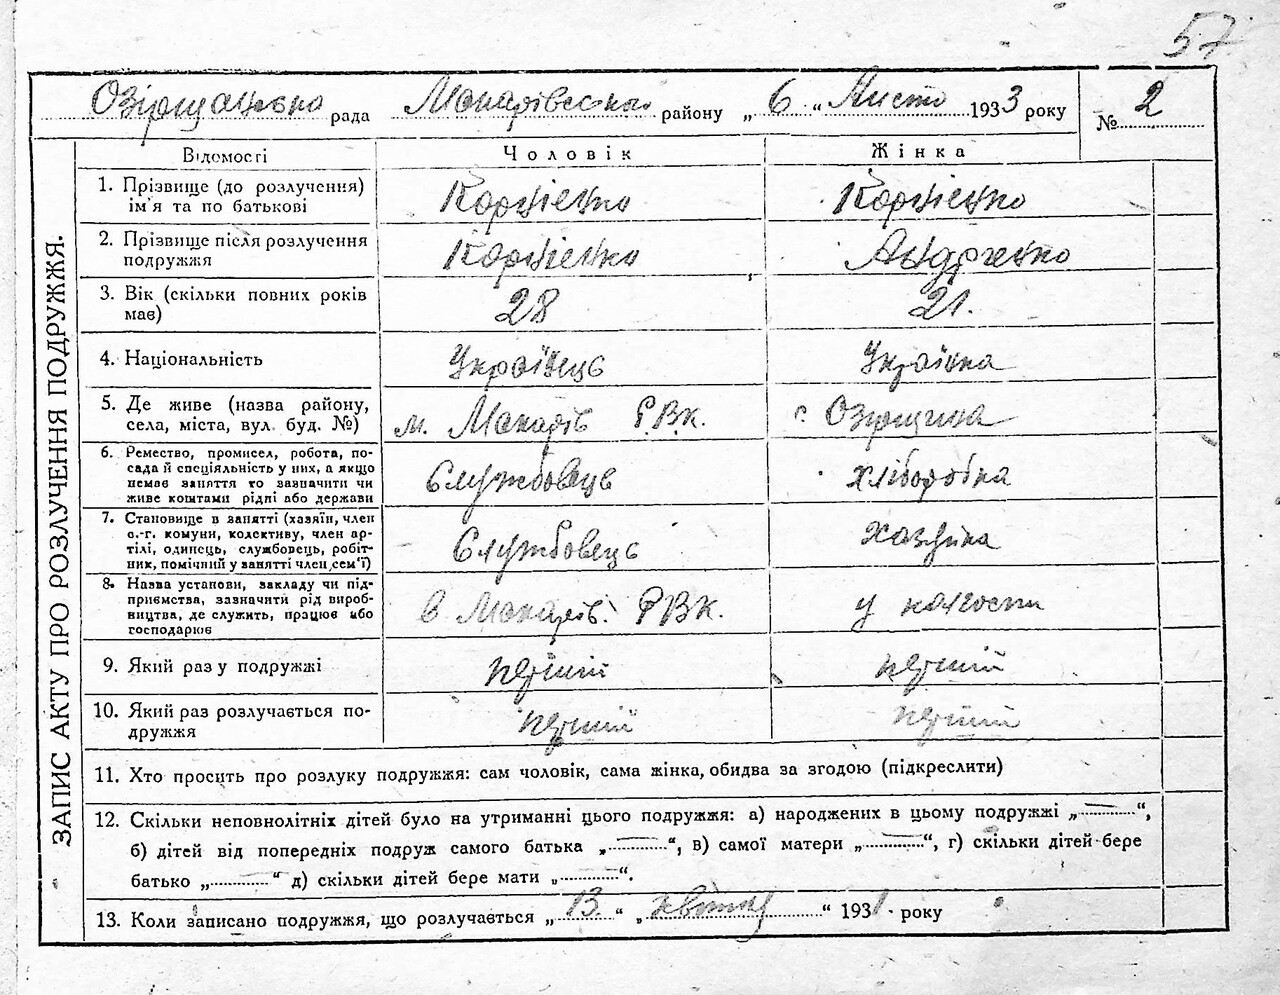 57
Озірщанська рада Макарівського району „ 6 “ Листо 1933 року № 2
ЗАПИС АКТУ ПРО РОЗЛУЧЕННЯ ПОДРУЖЖЯ.
Відомості Чоловік Жінка
1. Прізвище (до розлучення) ім'я та по батькові Корнієнко Корнієнко
2. Прізвище після розлучення подружжя Корнієнко Андрієнко
3. Вік (скільки повних років має) 28 21.
4. Національність Українець Українка
5. Де живе (назва району, села, міста, вул. буд. №) м. Макарів РВК. с. Озірщина
6. Ремество, промисел, робота, посада й спеціяльність у них, а якщо немає заняття то зазначити чи живе коштами рідні або держави Службовець хліборобка
7. Становище в занятті (хазяїн, член с.-г. комуни, колективу, член артілі, одинець, службовець, робітник, помічний у занятті член сем'ї) Службовець хазяйка
8. Назва установи, закладу чи підприємства, зазначити рід виробництва, де служить, працює або господарює в Макарів. РВК. у колгоспі
9. Який раз у подружжі перший перший
10. Який раз розлучається подружжя перший перший
11. Хто просить про розлуку подружжя: сам чоловік, сама жінка, обидва за згодою (підкреслити)
12. Скільки неповнолітніх дітей було на утриманні цього подружжя: а) народжених в цьому подружжі „—“,
б) дітей від попередніх подруж самого батька „—“, в) самої матери „—“, г) скільки дітей бере
батько „—“ д) скільки дітей бере мати „—“.
13. Коли записано подружжя, що розлучається „ 13 “ „ квітня “ 1931 року